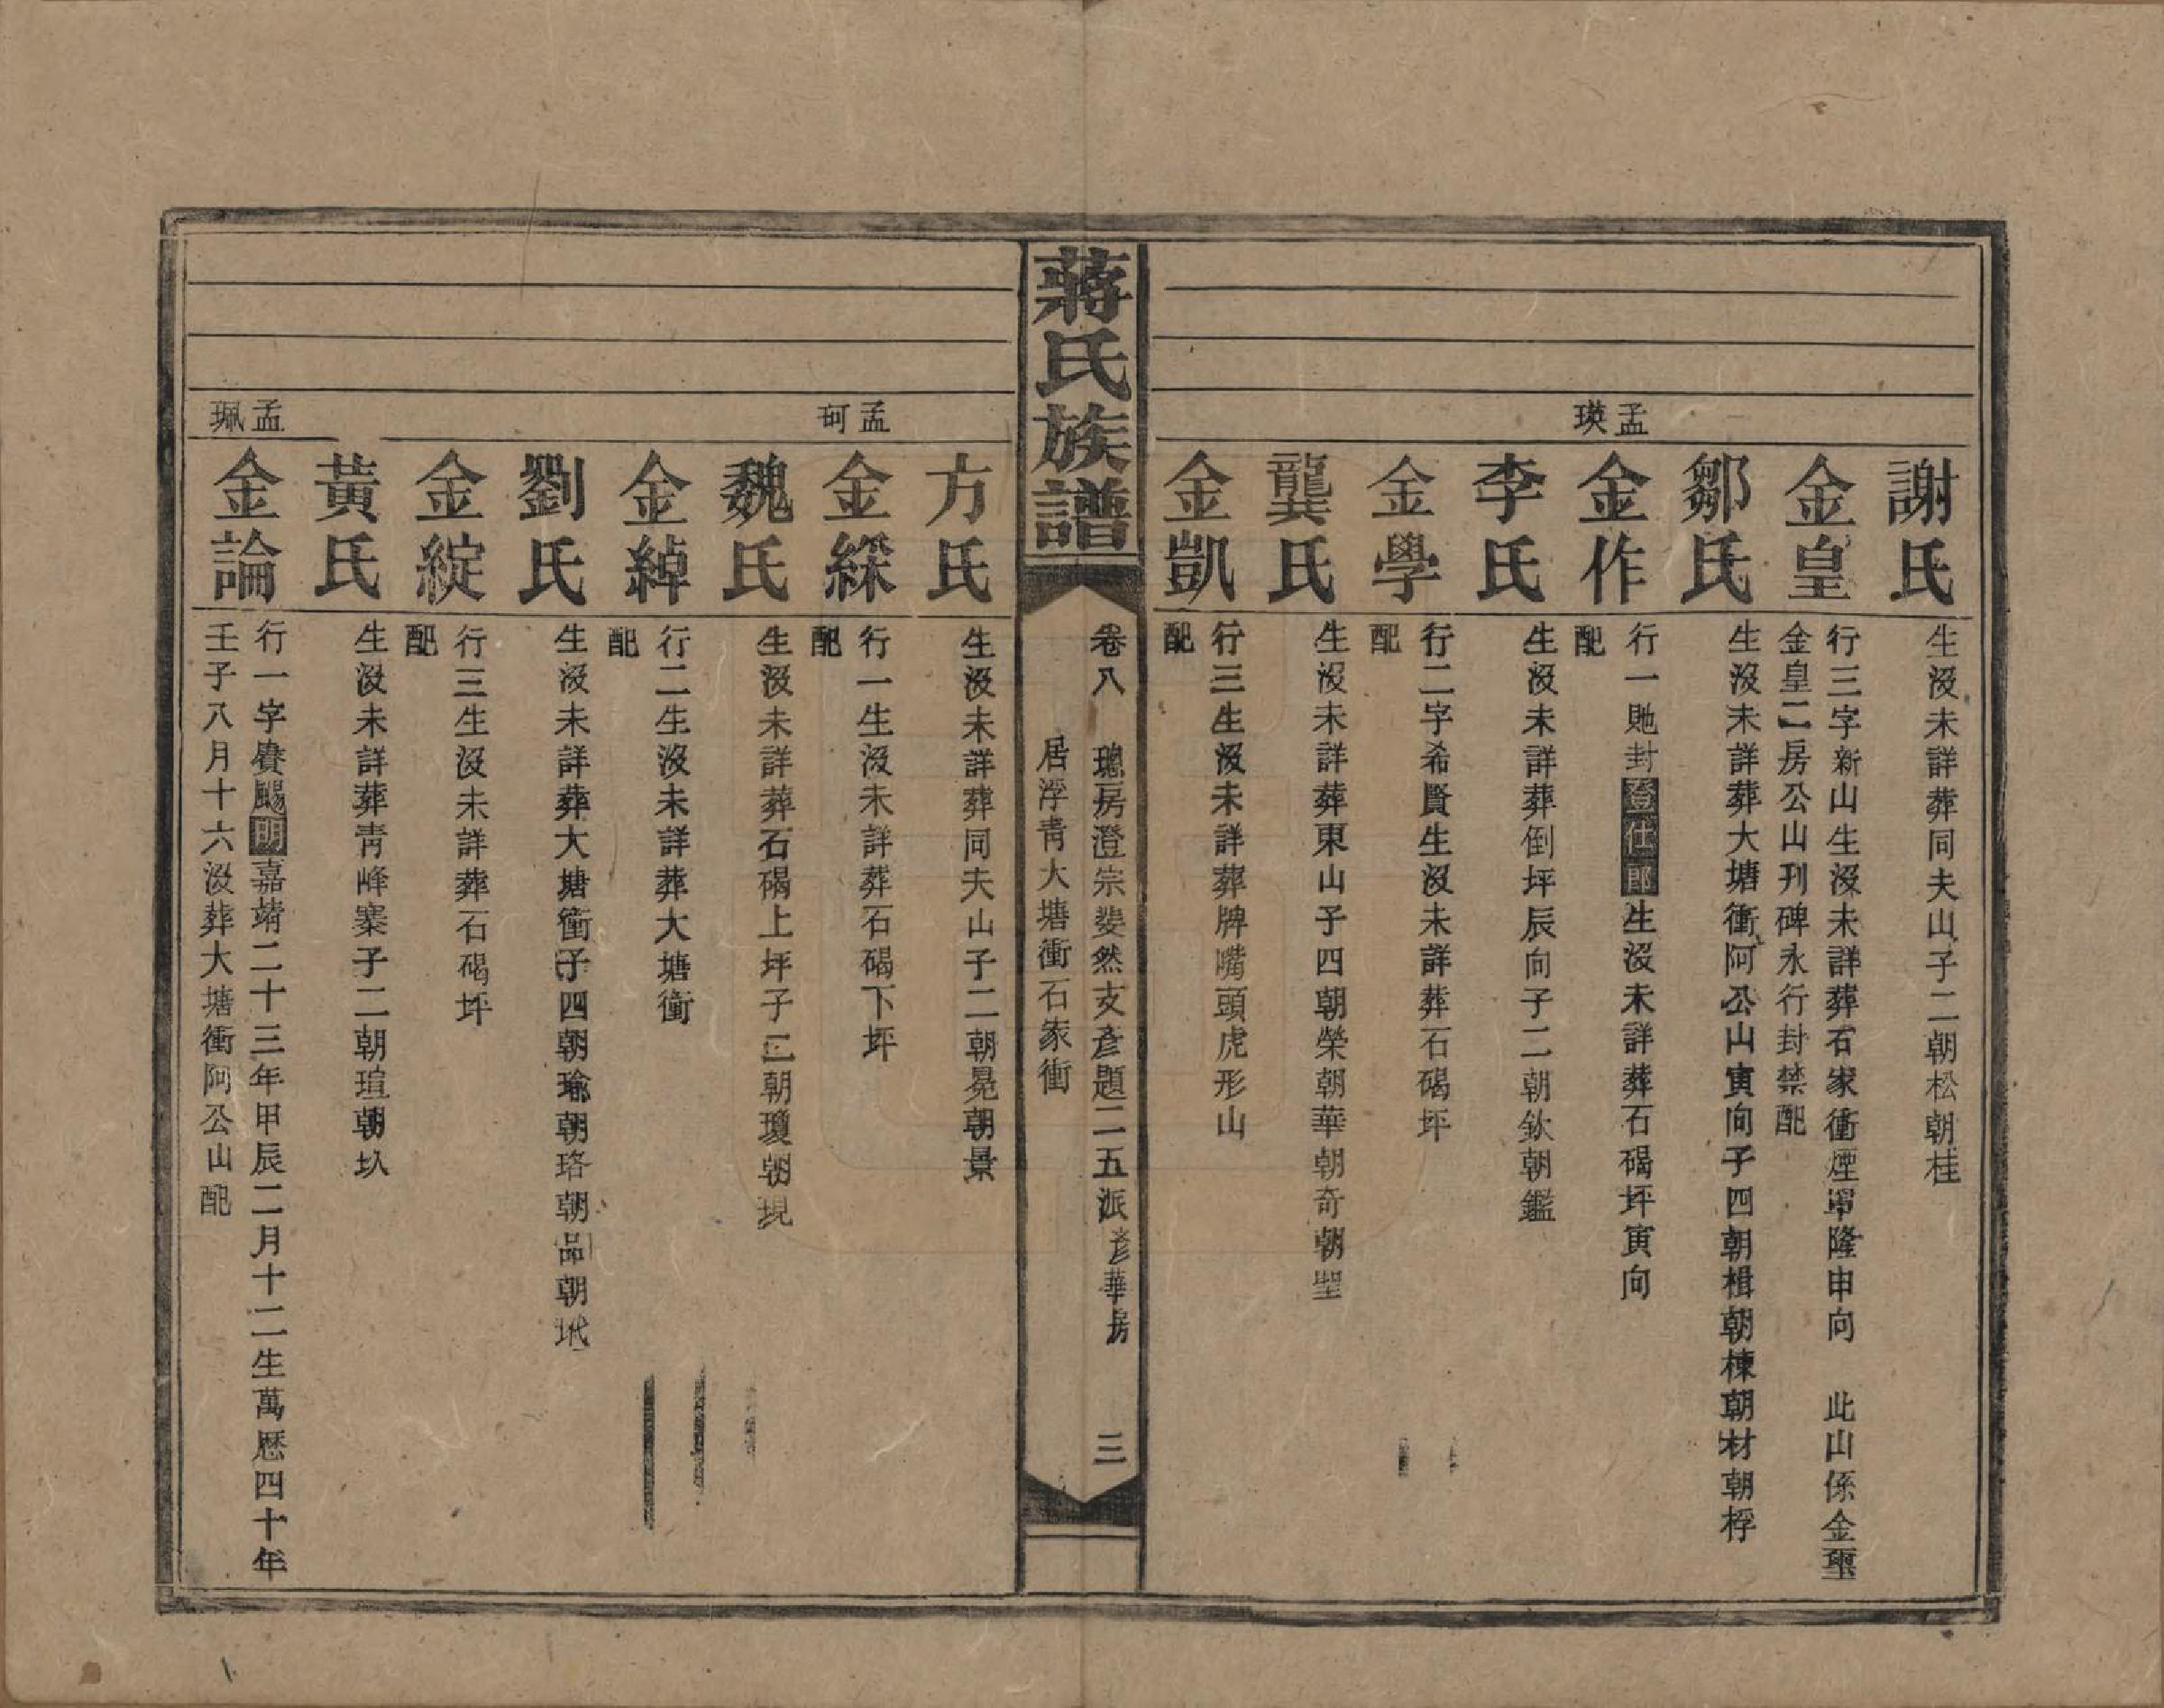 謝氏
生沒未詳葬同夫山子二朝松朝桂
金皇
行三字新山生沒未詳葬石家衝煙窜隆申向　此山係金璽
金皇二房公山刊碑永行封禁配
鄒氏
生沒未詳葬大塘衝阿公山寅向子四朝楫朝棟朝材朝桴
孟瑛
金作
行一貤封登仕郎生沒未詳葬石碣坪寅向
配
李氏
生沒未詳葬倒坪辰向子二朝欽朝鑑
金學
行二字希賢生沒未詳葬石碣坪
配
龔氏
生沒未詳葬東山子四朝榮朝華朝奇朝聖
金凱
行三生沒未詳葬牌嘴頭虎形山
配
蔣氏族譜
卷八　璁房澄宗斐然支彥題二五派彥華房　三
居浮青大塘衝石家衝
方氏
生沒未詳葬同夫山子二朝晃朝景
孟珂
金綵
行一生沒未詳葬石碣下坪
配
魏氏
生沒未詳葬石碣上坪子二朝瓊朝現
金綽
行二生沒未詳葬大塘衝
配
劉氏
生沒未詳葬大塘衝子四朝瑜朝珞朝品朝玳
金綻
行三生沒未詳葬石碣坪
配
黃氏
生沒未詳葬青峰寨子二朝瑄朝玖
孟珮
金論
行一字賡颺明嘉靖二十三年甲辰二月十二生萬歷四十年
壬子八月十六沒葬大塘衝阿公山配